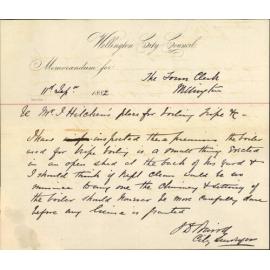 Wellington City Council
Memorandum for
The Town Clerk
Wellington
11th Sept 1882
Re Mr J Hitchin's place for boiling Tripe &c
I have inspected these premises the boiler
used for tripe boiling is a small thing erected
in an open shed at the back of his yard &
I should think if kept clean would be no
nuisance to any one the Chimney & setting of
the boiler should however be more carefully done
before any license is granted
City Surveyor